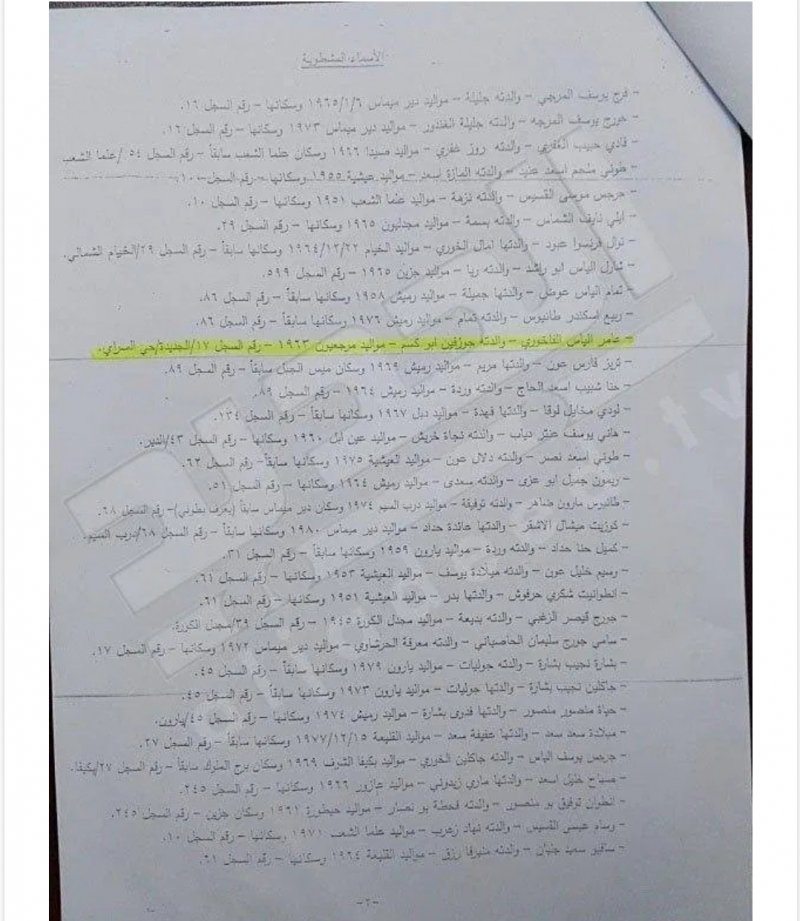 الأسماء المشطوبة
- فرج يوسف المرجي - والدته جليلة - مواليد دير ميماس ١٩٦٥/١/٦ وسكانها - رقم السجل ١٦.
- جورج يوسف المرجه - والدته جليلة الغندور - مواليد دير ميماس ١٩٧٣ وسكانها - رقم السجل ١٦.
- فادي حبيب الغفري - والدته روز غفري - مواليد صيدا ١٩٦٦ وسكان علما الشعب سابقاً - رقم السجل ٥٤ /علما الشعب
- طوني ملحم اسعد عيد - والدته المازة اسعد - مواليد عيشية ١٩٥٥ وسكانها - رقم السجل ١٠٠.
- جرجس موسى القسيس - والدته نزهة - مواليد علما الشعب ١٩٥١ وسكانها - رقم السجل ١٠.
- ايلي نايف الشماس - والدته بسمة - مواليد مجدليون ١٩٦٥ وسكانها - رقم السجل ٢٩.
- نوال فرنسوا عبود - والدتها امال الخوري - مواليد الخيام ١٩٦٤/١٢/٢٢ وسكانها سابقاً - رقم السجل ٢٩/الخيام الشمالي.
- شارل الياس ابو راشد - والدته ريا - مواليد جزين ١٩٦٥ - رقم السجل ٥٩٩.
- تمام الياس عوض - والدتها جميلة - مواليد رميش ١٩٥٨ وسكانها سابقاً - رقم السجل ٨٦.
- ربيع اسكندر طانيوس - والدته تمام - مواليد رميش ١٩٧٦ وسكانها سابقاً - رقم السجل ٨٦.
- عامر الياس الفاخوري - والدته جوزفين ابو كسم - مواليد مرجعيون ١٩٦٣ - رقم السجل ١٧/الجديدة/حي السراي.
- تريز فارس عون - والدتها مريم - مواليد رميش ١٩٦٩ وسكان ميس الجبل سابقاً - رقم السجل ٨٩.
- حنا شبيب اسعد الحاج - والدته وردة - مواليد رميش ١٩٦٤ - رقم السجل ٨٩.
- لودي مخايل لوقا - والدتها فهدة - مواليد دبل ١٩٦٧ وسكانها سابقاً - رقم السجل ١٣٤.
- هاني يوسف عنتر دياب - والدته نجاة خريش - مواليد عين ابل ١٩٦٠ وسكانها - رقم السجل ٤٣/الدير.
- طوني اسعد نصر - والدته دلال عون - مواليد العيشية ١٩٧٥ وسكانها سابقاً - رقم السجل ٦٢.
- ريمون جميل ابو عزى - والدته سعدى - مواليد رميش ١٩٦٤ وسكانها - رقم السجل ٥١.
- طانيوس مارون ضاهر - والدته توفيقة - مواليد درب السيم ١٩٧٤ وسكان دير ميماس سابقاً (يعرف بطوني) - رقم السجل ٦٨.
- كوزيت ميشال الاشقر - والدتها عائدة حداد - مواليد دير ميماس ١٩٨٠ وسكانها سابقاً - رقم السجل ٦٨/درب السيم.
- كميل حنا حداد - والدته وردة - مواليد يارون ١٩٥٩ وسكانها سابقاً - رقم السجل ٣١.
- وسيم خليل عون - والدته ميلادة يوسف - مواليد العيشية ١٩٥٣ وسكانها - رقم السجل ٦٤.
- انطوانيت شكري حرفوش - والدتها بدر - مواليد العيشية ١٩٥١ وسكانها - رقم السجل ٦١.
- جورج قيصر الزغبي - والدته بديعة - مواليد مجدل الكورة ١٩٤٥ - رقم السجل ٣٩/مجدل الكورة.
- سامي جورج سليمان الحاصباني - والدته معرفة الحرشاوي - مواليد دير ميماس ١٩٧٢ وسكانها سابقاً - رقم السجل ١٧.
- بشارة نجيب بشارة - والدته جوليات - مواليد يارون ١٩٧٩ وسكانها سابقاً - رقم السجل ٤٥.
- جاكلين نجيب بشارة - والدتها جوليات - مواليد يارون ١٩٧٣ وسكانها سابقاً - رقم السجل ٤٥.
- حياة منصور منصور - والدتها فدوى بشارة - مواليد رميش ١٩٧٤ وسكانها - رقم السجل ٤٥/يارون.
- ميلادة سعد سعد - والدتها عفيفة سعد - مواليد القليعة ١٩٧٧/١٢/١٥ وسكانها سابقاً - رقم السجل ٢٧.
- جرجس يوسف الياس - والدته جاكلين الخوري - مواليد بكيفا الشوف ١٩٦٩ وسكان برج الملوك سابقاً - رقم السجل ٢٧/بكيفا.
- صباح خليل اسعد - والدتها ماري زيدوني - مواليد عازور ١٩٦٦ وسكانها - رقم السجل ٢٤٥.
- انطوان توفيق بو منصور - والدته قحطة بو نصار - مواليد حيطورة ١٩٦١ وسكان جزين - رقم السجل ٢٤٥.
- وسام عيسى القسيس - والدته نهاد زعرب - مواليد علما الشعب ١٩٧١ وسكانها - رقم السجل ١٠.
- سافيو سعيد جليان - والدته منيرفا رزق - مواليد القليعة ١٩٦٤ وسكانها - رقم السجل ٦١.
-٢-